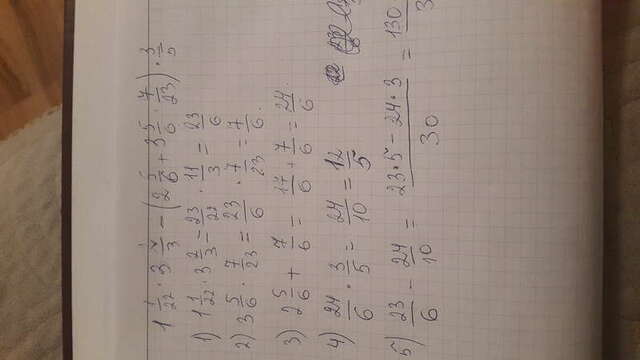 1 1/22 · 3 2/3 − (2 5/6 + 3 5/6 · 7/23) · 3/5
1) 1 1/22 · 3 2/3 = 23/22 · 11/3 = 23/6
2) 3 5/6 · 7/23 = 23/6 · 7/23 = 7/6.
3) 2 5/6 + 7/6 = 17/6 + 7/6 = 24/6
4) 24/6 · 3/5 = 24/10 = 12/5
5) 23/6 − 24/10 = (23·5 − 24·3)/30 = 130